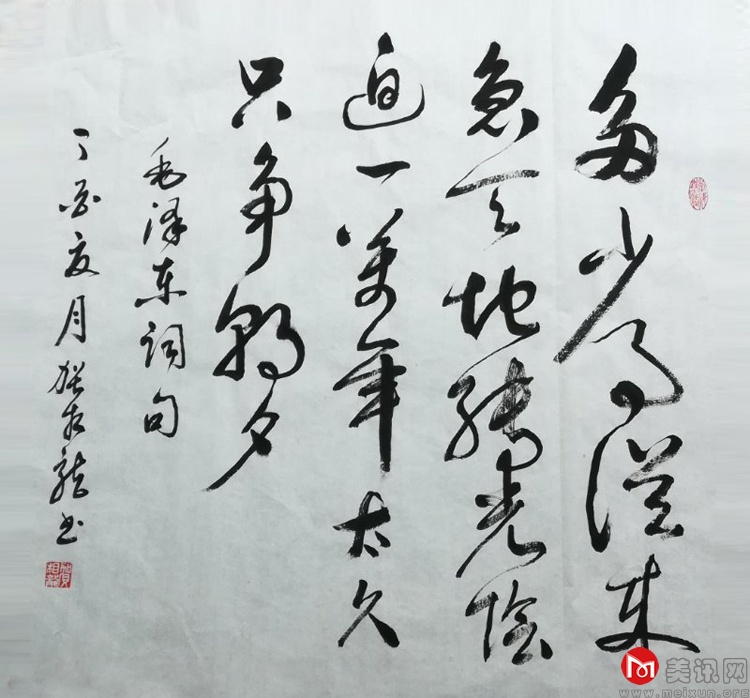 多少事從来
急天地轉光陰
迫一萬年太久
只争朝夕
毛泽东词句
丁酉夏月賀相龍书
美讯网
www.meixun.org